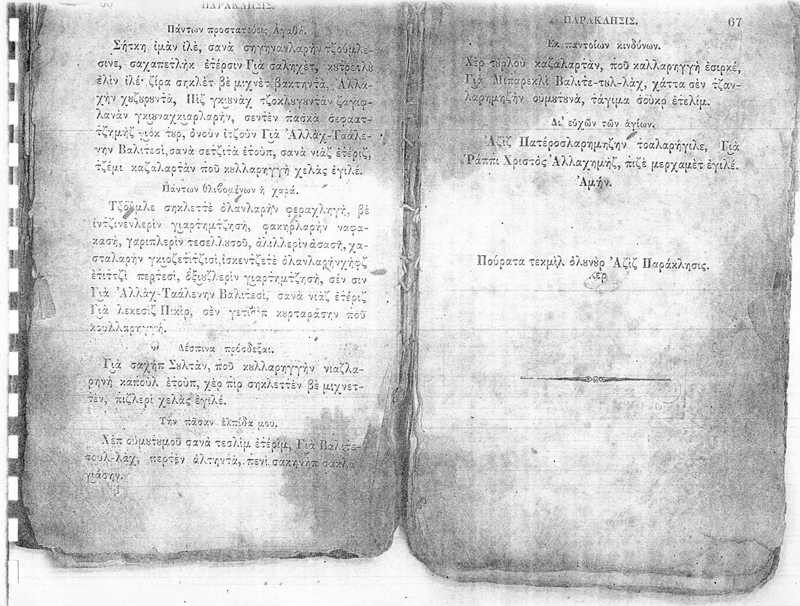 66 ΠΑΡΑΚΛΗΣΙΣ.
Πάντων προστατεύεις Ἀγαθή.
Σήτκη ἰμὰν ἰλὲ, σανὰ σηγηνανλαρὴν τζουμλε-
σινε, σαχαπετλὴκ ἐτέρσιν Γιὰ σαληχὲτ, κꙋτρετλꙋ
ἐλὶν ἰλέ· ζίρα σηκλὲτ βὲ μιχνὲτ βακτηντὰ, Ἀλλα-
χὴν χꙋζꙋρꙋντὰ, Πὶζ γκιꙋνὰχ τζοκλꙋγꙋντὰν ζαγιφ-
λανὰν γκιꙋναχκιαρλαρὴν, σεντὲν πασκὰ σεφαατ-
τζημὴζ γιὸκ τꙋρ, ὀνοὺν ἰτζοὺν Γιὰ Ἀλλὰχ-Ταάλε-
νην Βαλιτεσὶ, σανὰ σετζιτὰ ἐτοὺπ, σανὰ νιὰζ ἐτέριζ,
τζέμι καζαλαρτὰν ποῦ κꙋλλαρηγγὴ χελὰς ἐγιλέ.
Πάντων θλιβομένων ἡ χαρά.
Τζοῦμλε σηκλεττὲ ὀλανλαρὴν φεραχληγὴ, βὲ
ἰντζινενλερὶν γιαρτημτζησὴ, φακηρλαρὴν ναφα-
κασὴ, γαριπλερὶν τεσελλꙋσοῦ, ἀλιλλερὶν ἀσασὴ, χα-
σταλαρὴν γκιοζετιτζισὶ, ἐσκεντζετὲ ὀλανλαρὴν χηφζ
ἐτιττζὶ περτεσὶ, ὀξιꙋζλερὶν γιαρτημτζησὴ, σέν σιν
Γιὰ Ἀλλὰχ-Ταάλενην Βαλιτεσὶ, σανὰ νιὰζ ἐτέριζ
Γιὰ λεκεσὶζ Πικὶρ, σὲν κꙋρταράσην ποῦ
κουλλαρηγγή.
Δέσποινα πρόσδεξαι.
Γιὰ σαχὴπ Σουλτὰν, ποῦ κꙋλλαρηγγὴν νιαζλα-
ρηνὴ καποὺλ ἐτοὺπ, χὲρ πὶρ σηκλεττὲν βὲ μιχνετ-
τὲν, πιζλερὶ χελὰς ἐγιλέ.
Τὴν πᾶσαν ἐλπίδα μου.
Χὲπ οὐμꙋτꙋμοῦ σανὰ τεσλὶμ ἐτέριμ, Γιὰ Βαλιτε-
τοὺλ-λὰχ, περτὲν ἀλτηντὰ, πενὶ σακηνὴπ σακλα-
γιάσην.
ΠΑΡΑΚΛΗΣΙΣ. 67
Ἐκ παντοίων κινδύνων.
Χὲρ τꙋρλοῦ καζαλαρτὰν, ποῦ καλλαρηγγὴ ἐσιρκέ,
Γιὰ Μιπαρεκλὶ Βαλιτε-τοὺλ-λὰχ, χάττα σὲν τζαν-
λαρημηζὴν οὐμꙋτꙋνὰ, τάγιμα σοὺκρ ἐτελίμ.
Δι' εὐχῶν τῶν ἁγίων.
Ἀζὶζ Πατέροσλαρημηζὴν τοαλαρήγιλε, Γιὰ
Ῥάππι Χριστὸς Ἀλλαχημὴζ, πιζὲ μερχαμὲτ ἐγιλέ.
Ἀμήν.
Ποὺρατα τεκμὶλ ὀλꙋνꙋρ Ἀζὶζ Παράκλησις.